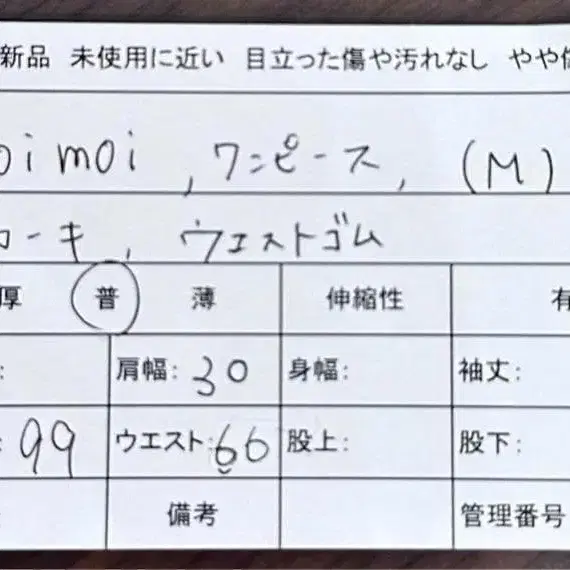 新品 未使用に近い 目立った傷や汚れなし やや
oi moi , ワンピース, (M)
カーキ, ウエストゴム
厚 普 薄 伸縮性 有
: 肩幅: 30 身幅: 袖丈:
: 99 ウエスト: 66 股上: 股下:
備考 管理番号